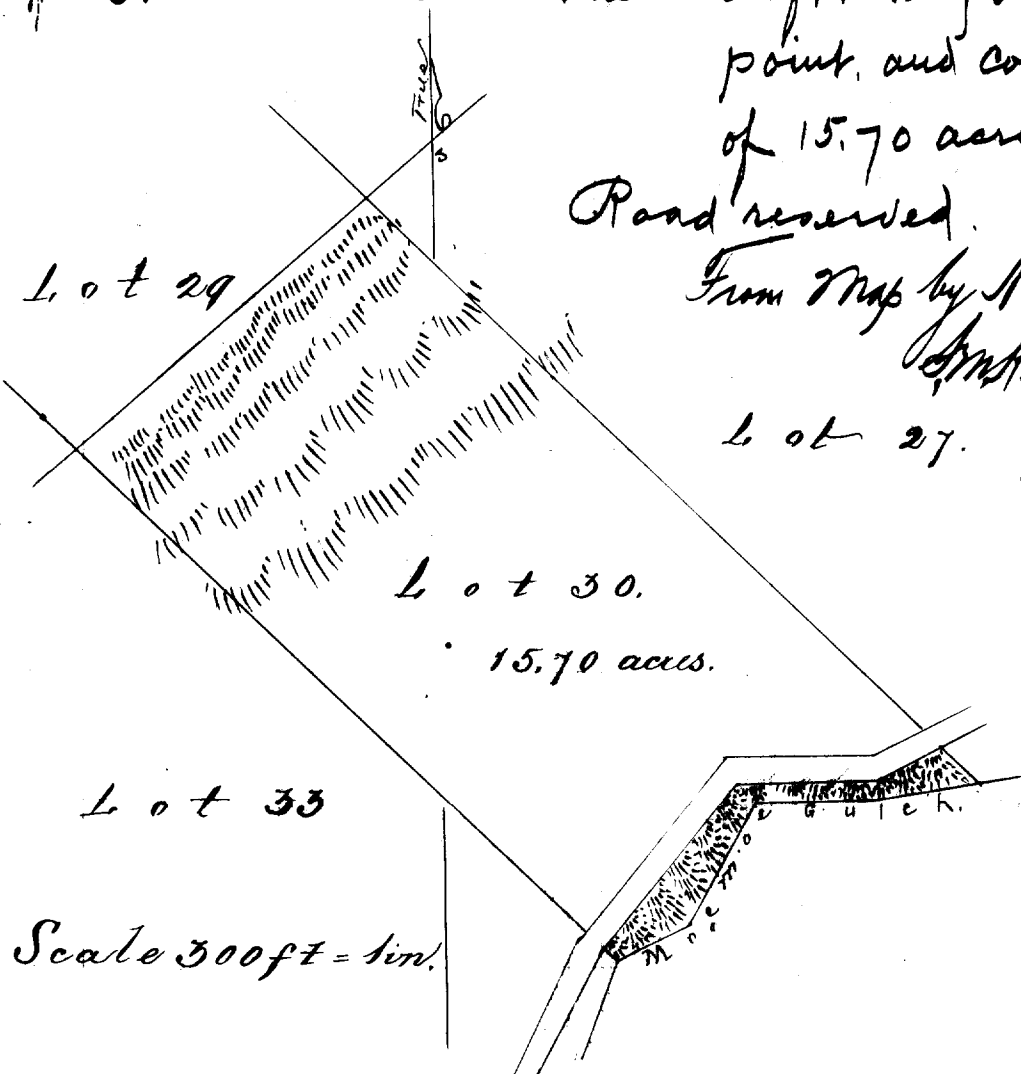 point, and co
of 15.70 acr
Road reserved.
From Map by
True
Lot 29
Lot 27.
Lot 30.
15.70 acres.
Lot 33
Gulch.
Scale 300ft = 1in.